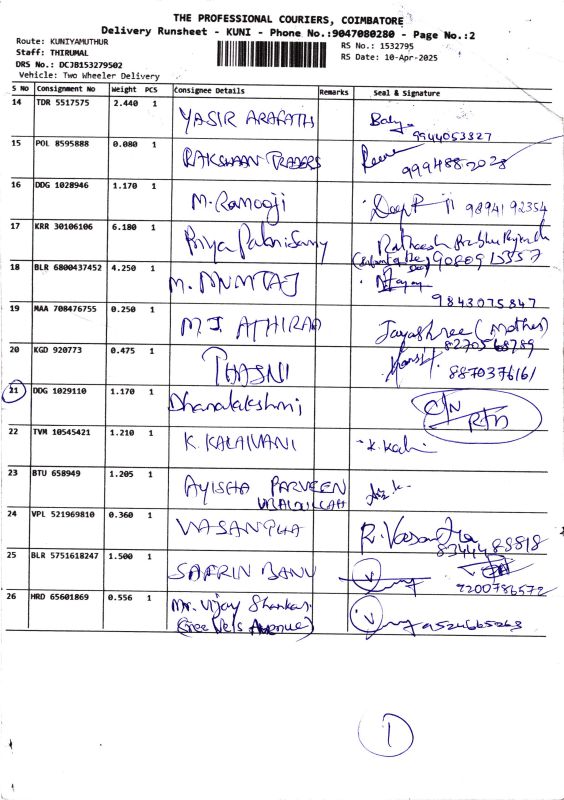 THE PROFESSIONAL COURIERS, COIMBATORE
Delivery Runsheet - KUNI - Phone No.:9047080280 - Page No.:2
Route: KUNIYAMUTHUR
RS No.: 1532795
Staff: THIRUMAL
RS Date: 10-Apr-2025
DRS No.: DCJB153279502
Vehicle: Two Wheeler Delivery
S No Consignment No Weight PCS Consignee Details Remarks Seal & Signature
14 TDR 5517575 2.440 1 YASIR ARAFATH
9944053327
15 POL 8595888 0.080 1 RAKSHAAN TRADERS
9994882028
16 DDG 1028946 1.170 1 M. Ramogji
9894192354
17 KRR 30106106 6.180 1 Priya Palanisamy
18 BLR 6800437452 4.250 1 M. MUMTAJ
9843075847
19 MAA 708476755 0.250 1 M.J. ATHIRAA Jayashree (Mother)
8270568789
20 KGD 920773 0.475 1 THASNI
8870376161
21 DDG 1029110 1.170 1 Dhanalakshmi
RTN
22 TVM 10545421 1.210 1 K. KALAIVANI K. Kalai
23 BTU 658949 1.205 1 AYISHA PARVEEN
UBAIDULLAH
24 VPL 521969810 0.360 1 VASANTHA R. Vasantha
8344488818
25 BLR 5751618247 1.500 1 SAFRIN BANU
7200786572
26 HRD 65601869 0.556 1 Mr. Vijay Shankar
(Sree Vels Avenue)
9524665263
1